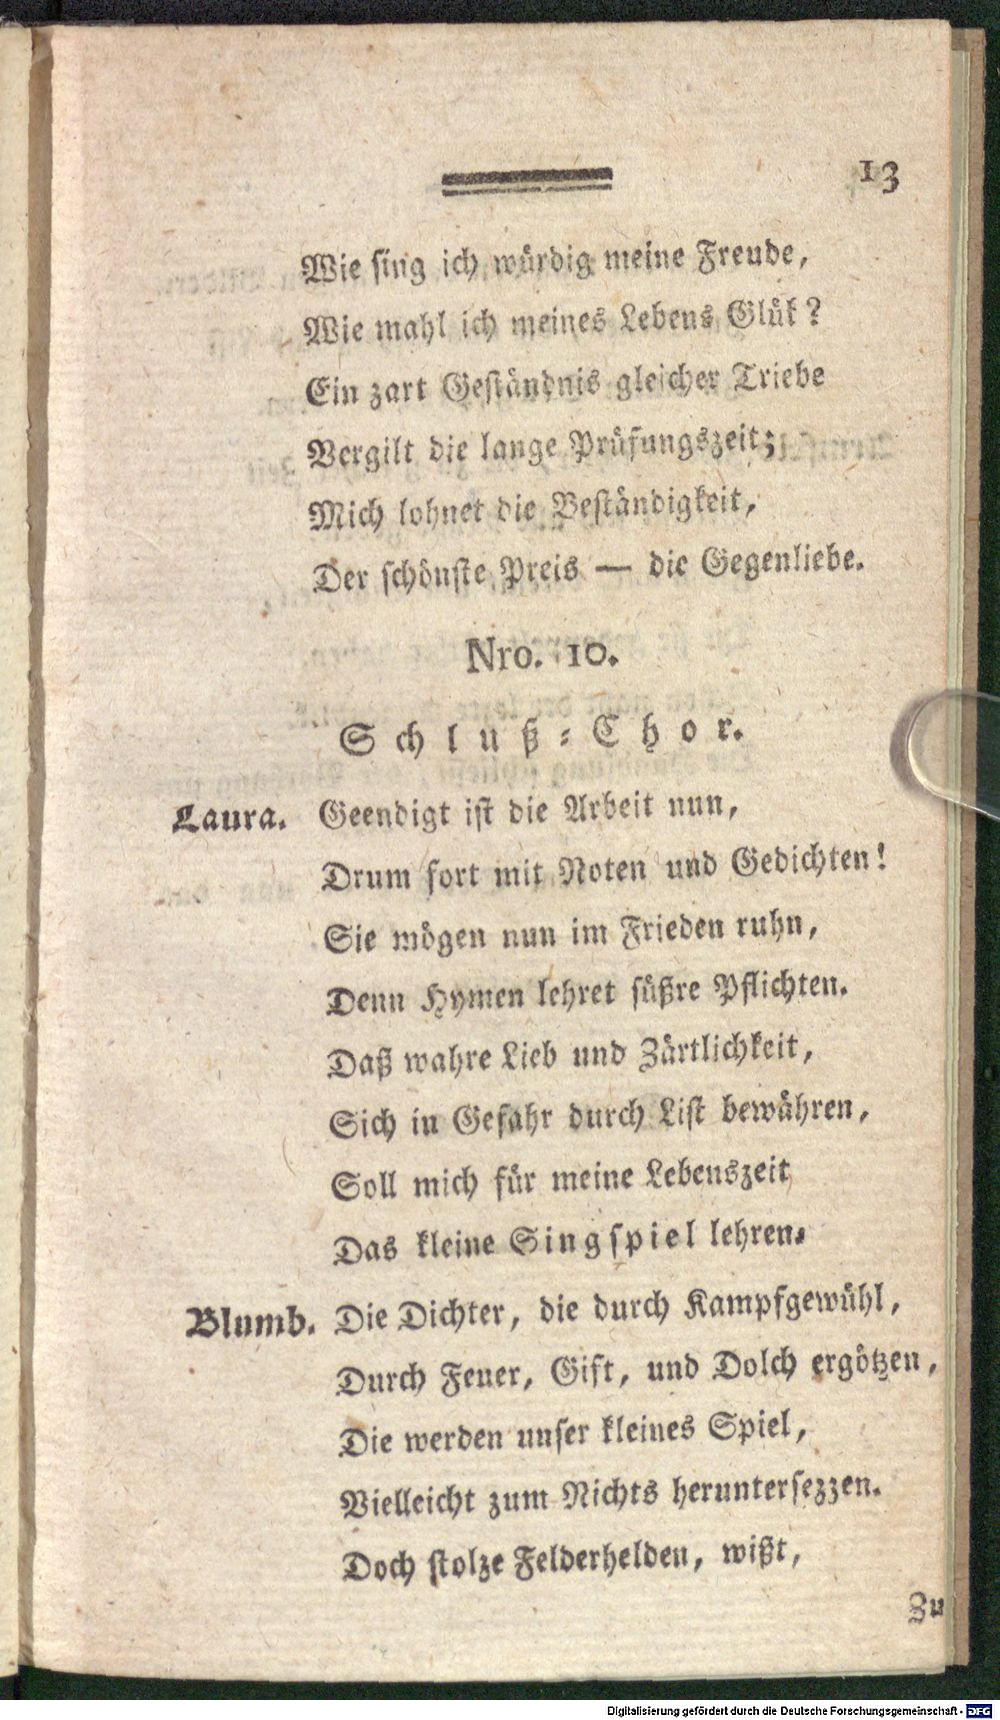 13
Wie sing ich würdig meine Freude,
Wie mahl ich meines Lebens Glük?
Ein zart Geständnis gleicher Triebe
Vergilt die lange Prüfungszeit;
Mich lohnet die Beständigkeit,
Der schönste Preis — die Gegenliebe.
Nro. 10.
Schluß-Chor.
Laura. Geendigt ist die Arbeit nun,
Drum fort mit Noten und Gedichten!
Sie mögen nun im Frieden ruhn,
Denn Hymen lehret süßre Pflichten.
Daß wahre Lieb und Zärtlichkeit,
Sich in Gefahr durch List bewähren,
Soll mich für meine Lebenszeit
Das kleine Singspiel lehren.
Blumb. Die Dichter, die durch Kampfgewühl,
Durch Feuer, Gift, und Dolch ergötzen,
Die werden unser kleines Spiel,
Vielleicht zum Nichts heruntersezzen.
Doch stolze Felderhelden, wißt,
Zu
Digitalisierung gefördert durch die Deutsche Forschungsgemeinschaft - DFG